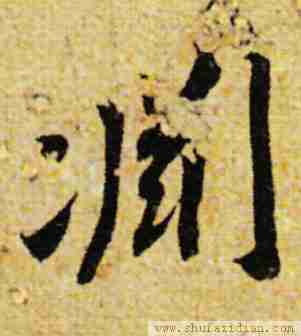 淵
www.shufazidian.com